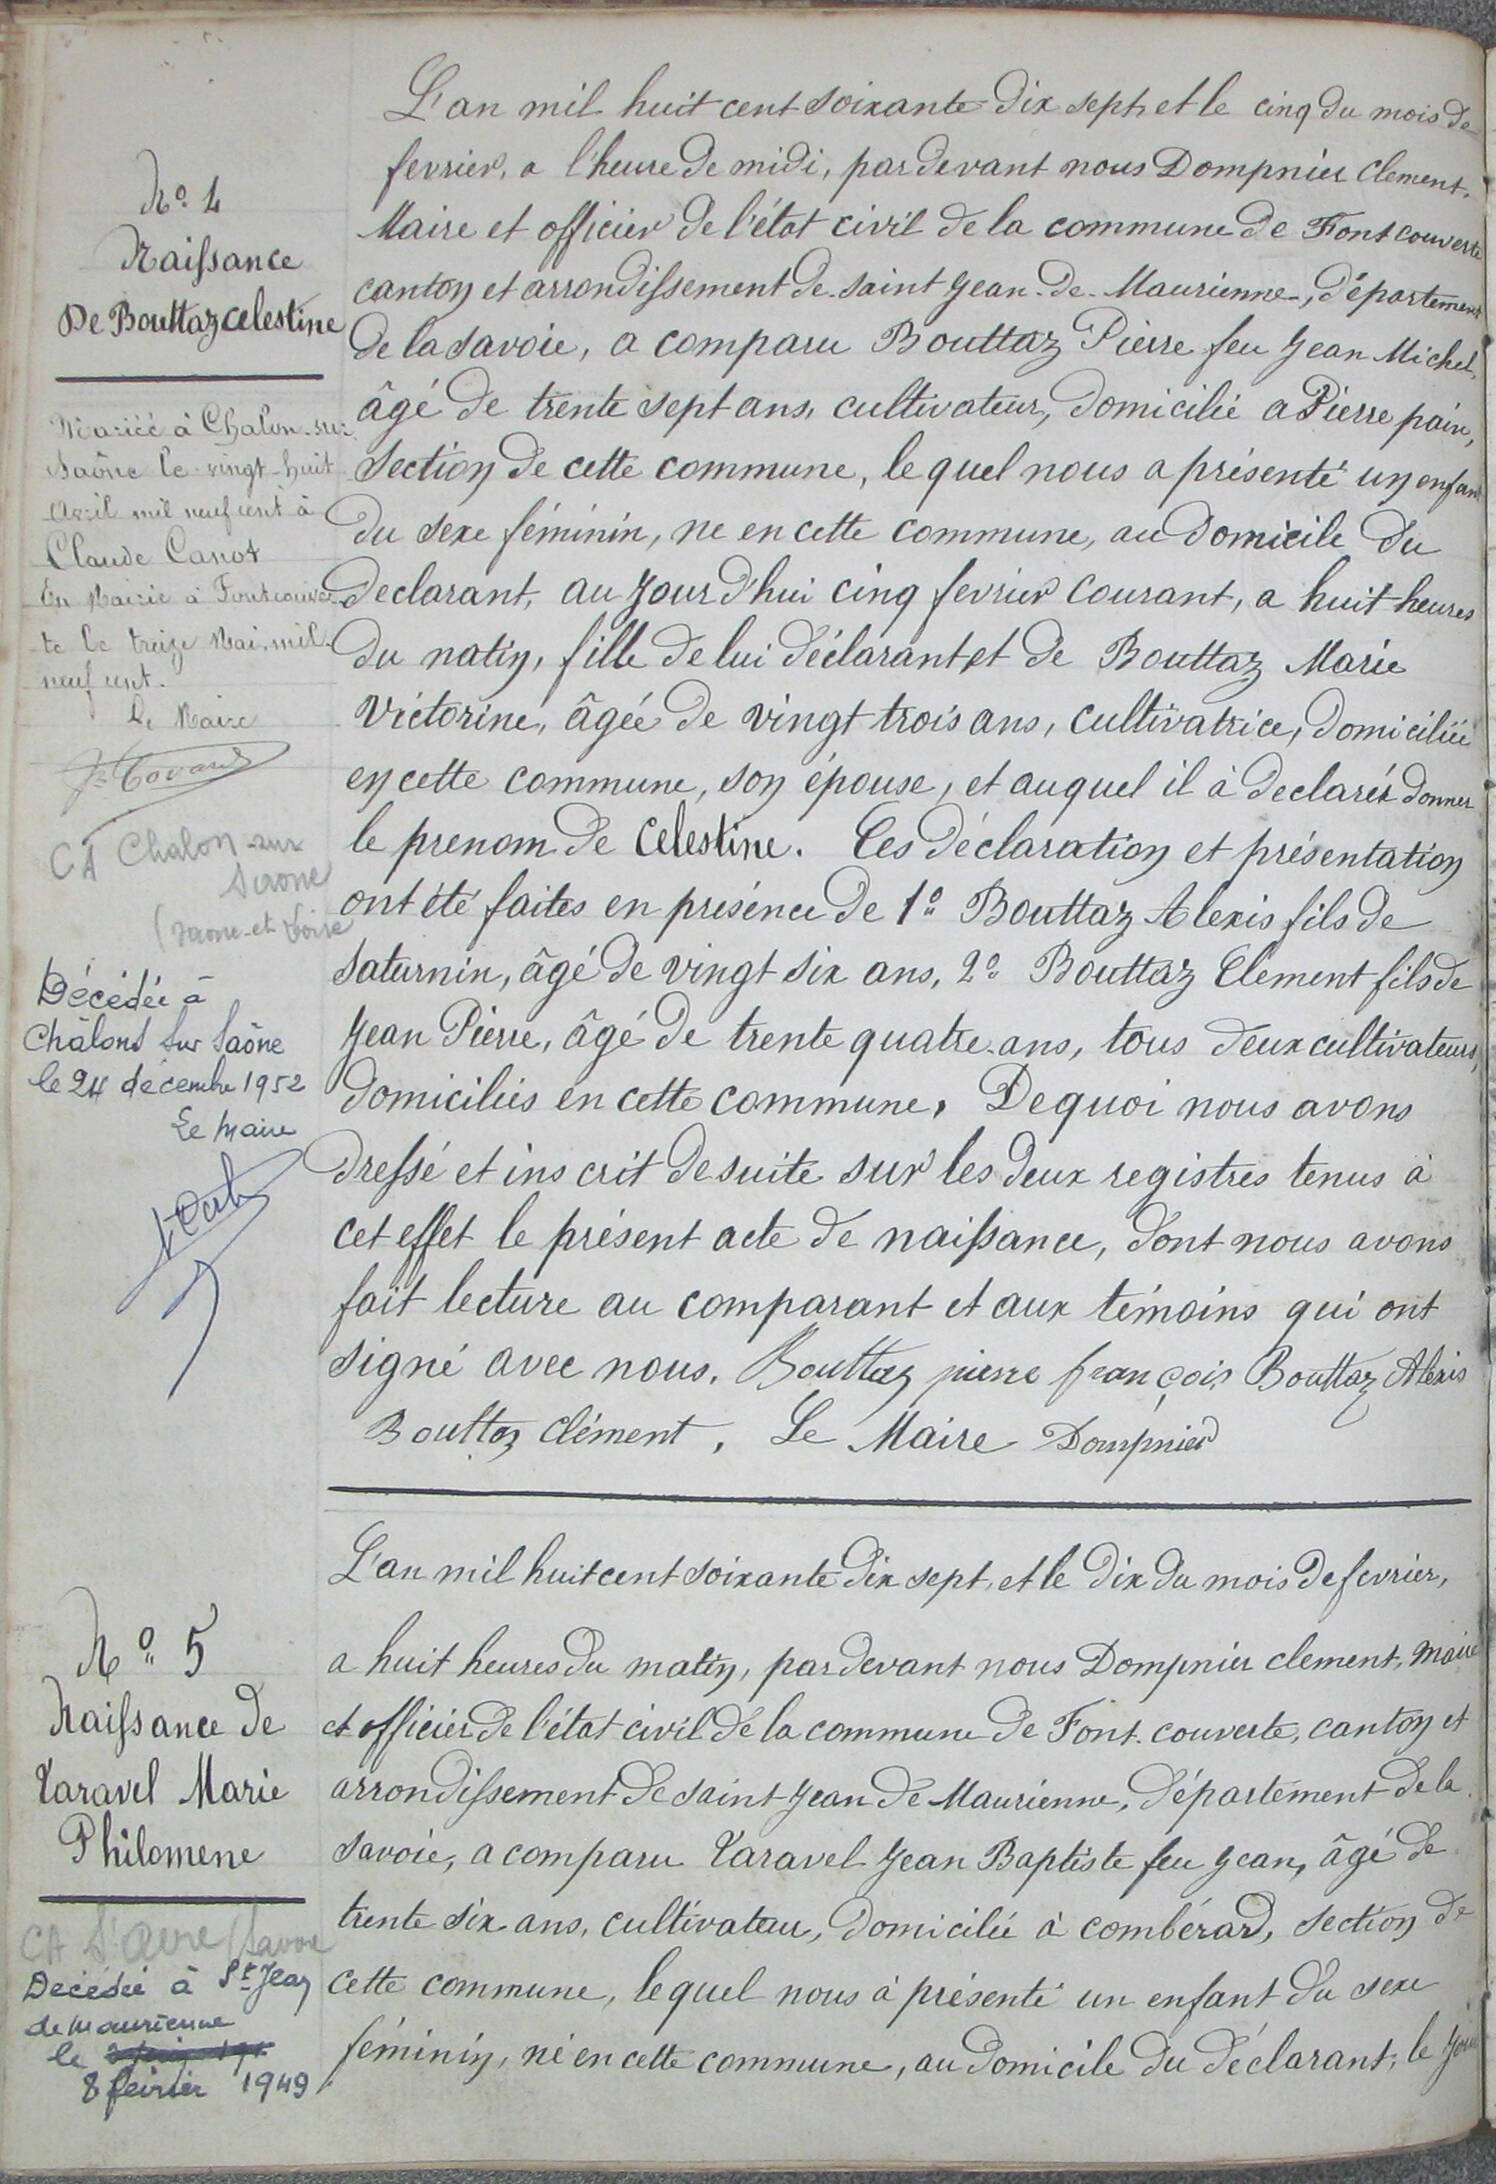 N° 4
Naissance
De Bouttaz celestine
Mariée à Chalon-sur-
Saône le vingt-huit
Avril mil neuf cent à
Claude Canot
En Mairie à Fontcouver-
te le treize Mai mil
neuf cent.
Le Maire
CA Chalon-sur
Saone
(Saone-et Loire
Décédée à
Châlons sur Saône
le 24 décembre 1952
Le Maire
L'an mil huit cent soixante-dix sept, et le cinq du mois de
fevrier, a l'heure de midi, par devant nous Dompnier Clement,
Maire et officier de l'état civil de la commune de Fontcouverte
canton et arrondissement de saint Jean-de-Maurienne, département
de la Savoie, a comparu Bouttaz Pierre feu Jean Michel,
âgé de trente sept ans, cultivateur, domicilié a Pierre pain,
section de cette commune, le quel nous a présenté un enfant
du sexe féminin, ne en cette commune, au domicile du
declarant, au jour d'hui cinq fevrier courant, a huit heures
du matin, fille de lui déclarant et de Bouttaz Marie
Victorine, âgée de vingt trois ans, cultivatrice, domiciliée
en cette commune, son épouse, et auquel il à declarér donner
le prenom de Celestine. Ces déclaration et présentation
ont été faites en présence de 1° Bouttaz Alexis fils de
Saturnin, âgé de vingt six ans, 2° Bouttaz Clement fils de
Jean Pierre, âgé de trente quatre ans, tous deux cultivateurs,
domiciliés en cette commune, De quoi nous avons
dressé et ins crit de suite sur les deux registres tenus à
cet effet le présent acte de naissance, dont nous avons
fait lecture au comparant et aux témoins qui ont
signé avec nous. Bouttaz pierre françois Bouttaz Alexis
Bouttaz Clément, Le Maire Dompnier
N° 5
Naissance de
Taravel Marie
Philomene
CA St Avre / Savoie
Décédée à St Jean
de Maurienne
le
8 fevrier 1949
L'an mil huit cent soixante dix sept, et le dix du mois de fevrier,
a huit heures du matin, par devant nous Dompnier clement, maire
et officier de l'état civil de la commune de Font-couverte, canton et
arrondissement de saint Jean de Maurienne, département de la
Savoie, a comparu Taravel Jean Baptiste feu Jean, âgé de
trente six ans, cultivateur, domicilié à combérard, section de
cette commune, le quel nous à présenté un enfant du sexe
féminin, né en cette commune, au domicile du déclarant, le jour